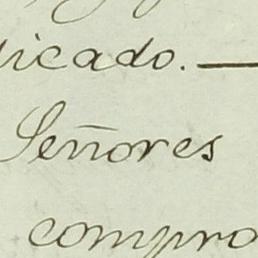 licado. —
Señores
compro